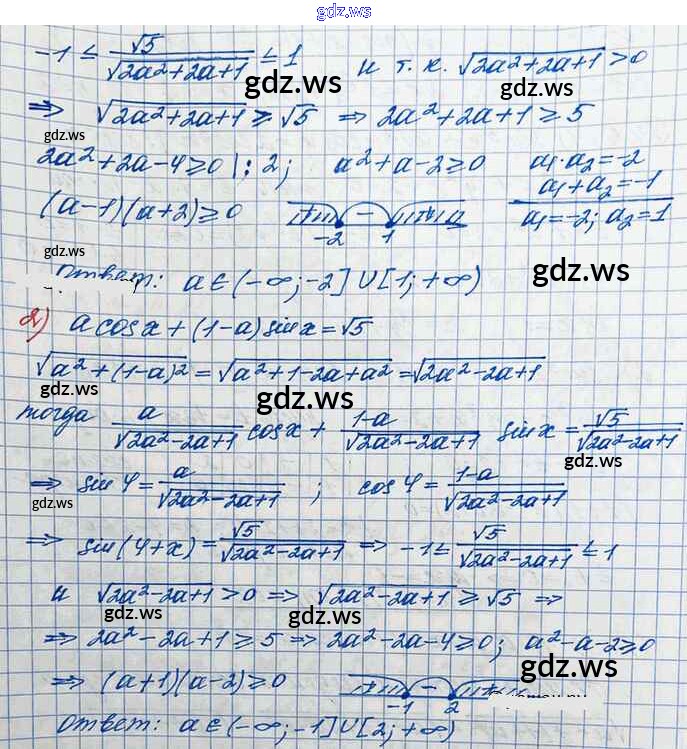 gdz.ws
-1 ≤ √5/√(2a²+2a+1) ≤ 1 и т.к. √(2a²+2a+1) > 0
gdz.ws gdz.ws
⇒ √(2a²+2a+1) ≥ √5 ⇒ 2a²+2a+1 ≥ 5
gdz.ws
2a²+2a-4 ≥ 0 |: 2; a²+a-2 ≥ 0 a₁·a₂ = -2
a₁+a₂ = -1
(a-1)(a+2) ≥ 0 + - + -2 1 a₁ = -2; a₂ = 1
gdz.ws gdz.ws gdz.ws
Ответ: a ∈ (-∞; -2] ∪ [1; +∞)
2) a cos x + (1-a) sin x = √5
√(a²+(1-a)²) = √(a²+1-2a+a²) = √(2a²-2a+1)
gdz.ws gdz.ws gdz.ws
тогда a/√(2a²-2a+1) cos x + (1-a)/√(2a²-2a+1) sin x = √5/√(2a²-2a+1)
gdz.ws
⇒ sin φ = a/√(2a²-2a+1); cos φ = (1-a)/√(2a²-2a+1)
gdz.ws gdz.ws
⇒ sin(φ+x) = √5/√(2a²-2a+1) ⇒ -1 ≤ √5/√(2a²-2a+1) ≤ 1
gdz.ws
и √(2a²-2a+1) > 0 ⇒ √(2a²-2a+1) ≥ √5 ⇒
gdz.ws gdz.ws
⇒ 2a²-2a+1 ≥ 5 ⇒ 2a²-2a-4 ≥ 0; a²-a-2 ≥ 0
gdz.ws
⇒ (a+1)(a-2) ≥ 0 - -1 2
Ответ: a ∈ (-∞; -1] ∪ [2; +∞)
gdz.ws gdz.ws